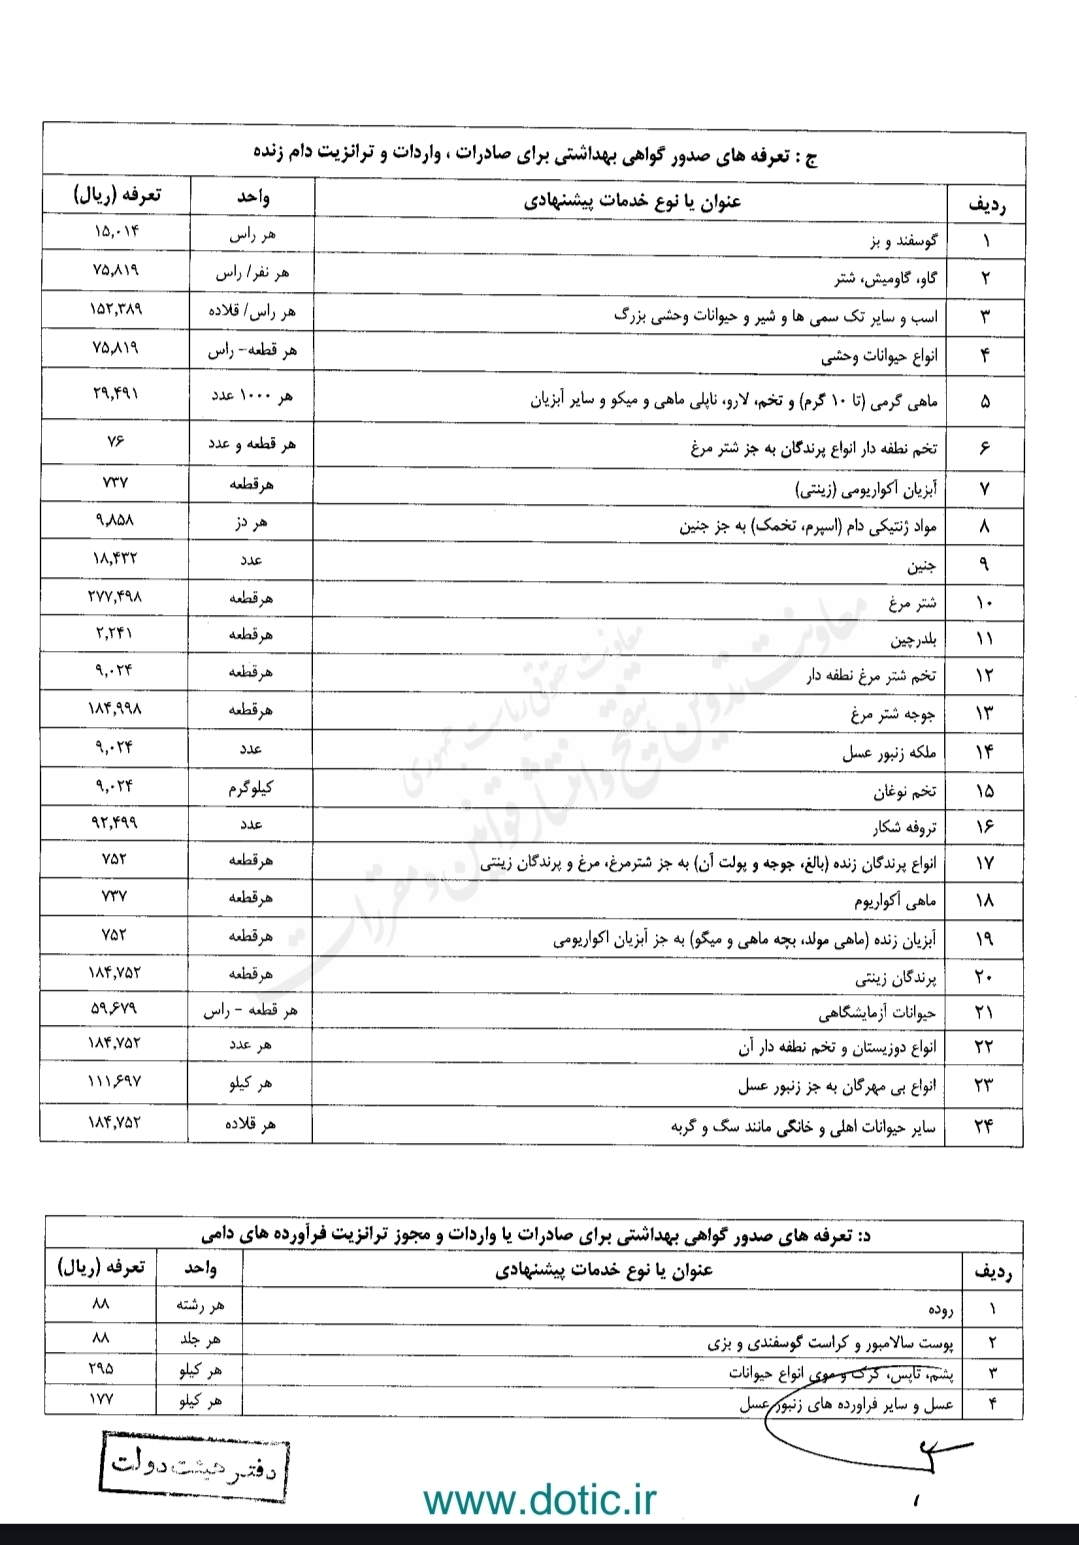 ج : تعرفه های صدور گواهی بهداشتی برای صادرات ، واردات و ترانزیت دام زنده
ردیف عنوان یا نوع خدمات پیشنهادی واحد تعرفه (ریال)
۱ گوسفند و بز هر راس ۱۵,۰۱۴
۲ گاو، گاومیش، شتر هر نفر/ راس ۷۵,۸۱۹
۳ اسب و سایر تک سمی ها و شیر و حیوانات وحشی بزرگ هر راس/ قلاده ۱۵۲,۳۸۹
۴ انواع حیوانات وحشی هر قطعه- راس ۷۵,۸۱۹
۵ ماهی گرمی (تا ۱۰ گرم) و تخم، لارو، ناپلی ماهی و میکو و سایر آبزیان هر ۱۰۰۰ عدد ۲۹,۴۹۱
۶ تخم نطفه دار انواع پرندگان به جز شتر مرغ هر قطعه و عدد ۷۶
۷ آبزیان آکواریومی (زینتی) هرقطعه ۷۳۷
۸ مواد ژنتیکی دام (اسپرم، تخمک) به جز جنین هر دز ۹,۸۵۸
۹ جنین عدد ۱۸,۴۳۲
۱۰ شتر مرغ هرقطعه ۲۷۷,۴۹۸
۱۱ بلدرچین هرقطعه ۲,۲۴۱
۱۲ تخم شتر مرغ نطفه دار هرقطعه ۹,۰۲۴
۱۳ جوجه شتر مرغ هرقطعه ۱۸۴,۹۹۸
۱۴ ملکه زنبور عسل عدد ۹,۰۲۴
۱۵ تخم نوغان کیلوگرم ۹,۰۲۴
۱۶ تروفه شکار عدد ۹۲,۴۹۹
۱۷ انواع پرندگان زنده (بالغ، جوجه و پولت آن) به جز شترمرغ، مرغ و پرندگان زینتی هرقطعه ۷۵۲
۱۸ ماهی آکواریوم هرقطعه ۷۳۷
۱۹ آبزیان زنده (ماهی مولد، بچه ماهی و میگو) به جز آبزیان اکواریومی هرقطعه ۷۵۲
۲۰ پرندگان زینتی هرقطعه ۱۸۴,۷۵۲
۲۱ حیوانات آزمایشگاهی هر قطعه - راس ۵۹,۶۷۹
۲۲ انواع دوزیستان و تخم نطفه دار آن هر عدد ۱۸۴,۷۵۲
۲۳ انواع بی مهرگان به جز زنبور عسل هر کیلو ۱۱۱,۶۹۷
۲۴ سایر حیوانات اهلی و خانگی مانند سگ و گربه هر قلاده ۱۸۴,۷۵۲
معاونت حقوقی ریاست جمهوری
معاونت تدوین تنقیح و انتشار قوانین و مقررات
د: تعرفه های صدور گواهی بهداشتی برای صادرات یا واردات و مجوز ترانزیت فرآورده های دامی
ردیف عنوان یا نوع خدمات پیشنهادی واحد تعرفه (ریال)
۱ روده هر رشته ۸۸
۲ پوست سالامبور و کراست گوسفندی و بزی هر جلد ۸۸
۳ پشم، تاپس، کرک و موی انواع حیوانات هر کیلو ۲۹۵
۴ عسل و سایر فراورده های زنبور عسل هر کیلو ۱۷۷
دفتر هیئت دولت
www.dotic.ir